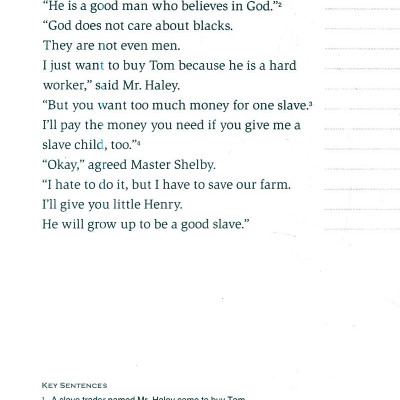 “He is a good man who believes in God.”²
“God does not care about blacks.
They are not even men.
I just want to buy Tom because he is a hard
worker,” said Mr. Haley.
“But you want too much money for one slave.³
I’ll pay the money you need if you give me a
slave child, too.”⁴
“Okay,” agreed Master Shelby.
“I hate to do it, but I have to save our farm.
I’ll give you little Henry.
He will grow up to be a good slave.”
KEY SENTENCES
¹ A slave trader named Mr. Haley came to buy Tom.